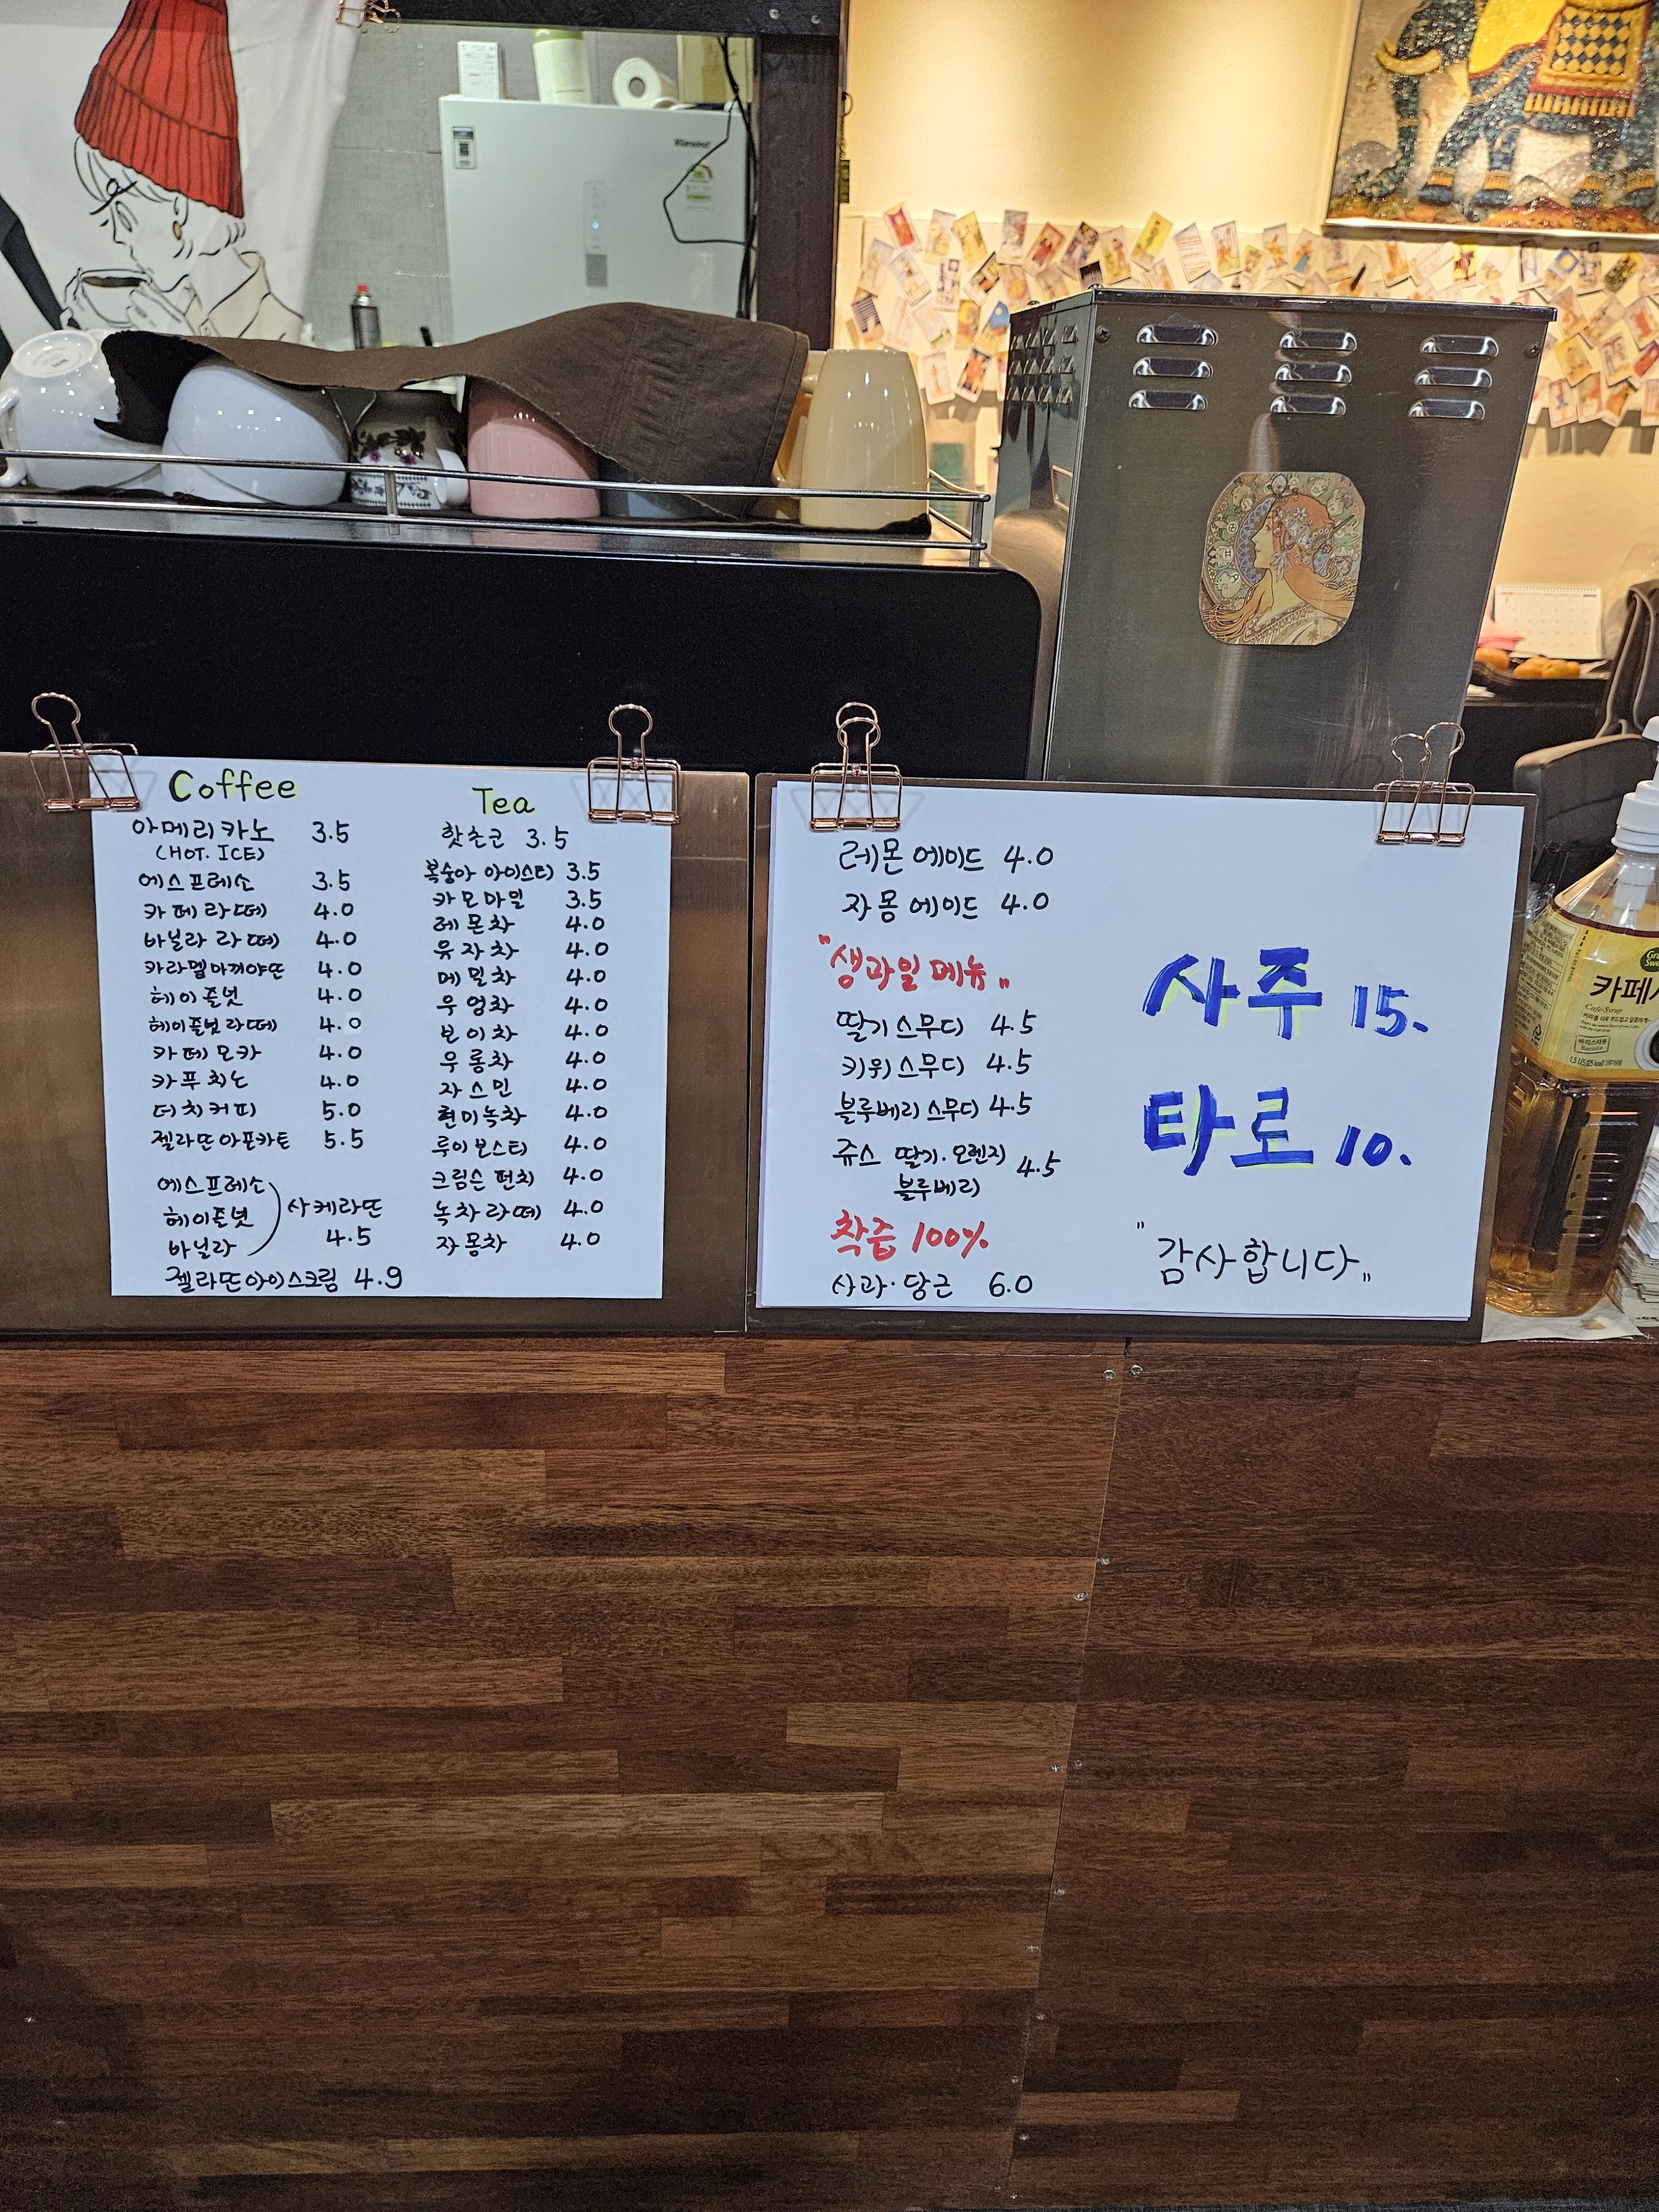 Coffee
아메리카노 3.5
(HOT. ICE)
에스프레소 3.5
카페라떼 4.0
바닐라 라떼 4.0
카라멜마끼야또 4.0
헤이즐넛 4.0
헤이즐넛라떼 4.0
카페모카 4.0
카푸치노 4.0
더치커피 5.0
젤라또아포카토 5.5
에스프레소
헤이즐넛
바닐라
사케라또
4.5
젤라또아이스크림 4.9
Tea
핫초코 3.5
복숭아 아이스티 3.5
카모마일 3.5
레몬차 4.0
유자차 4.0
메밀차 4.0
우엉차 4.0
본이차 4.0
우롱차 4.0
자스민 4.0
현미녹차 4.0
루이보스티 4.0
크림슨 펀치 4.0
녹차라떼 4.0
자몽차 4.0
레몬에이드 4.0
자몽에이드 4.0
"생과일메뉴"
딸기스무디 4.5
키위스무디 4.5
블루베리스무디 4.5
쥬스 딸기·오렌지 4.5
블루베리
착즙 100%
사과·당근 6.0
사주 15.
타로 10.
"감사합니다"
카페
Cafe Syrup